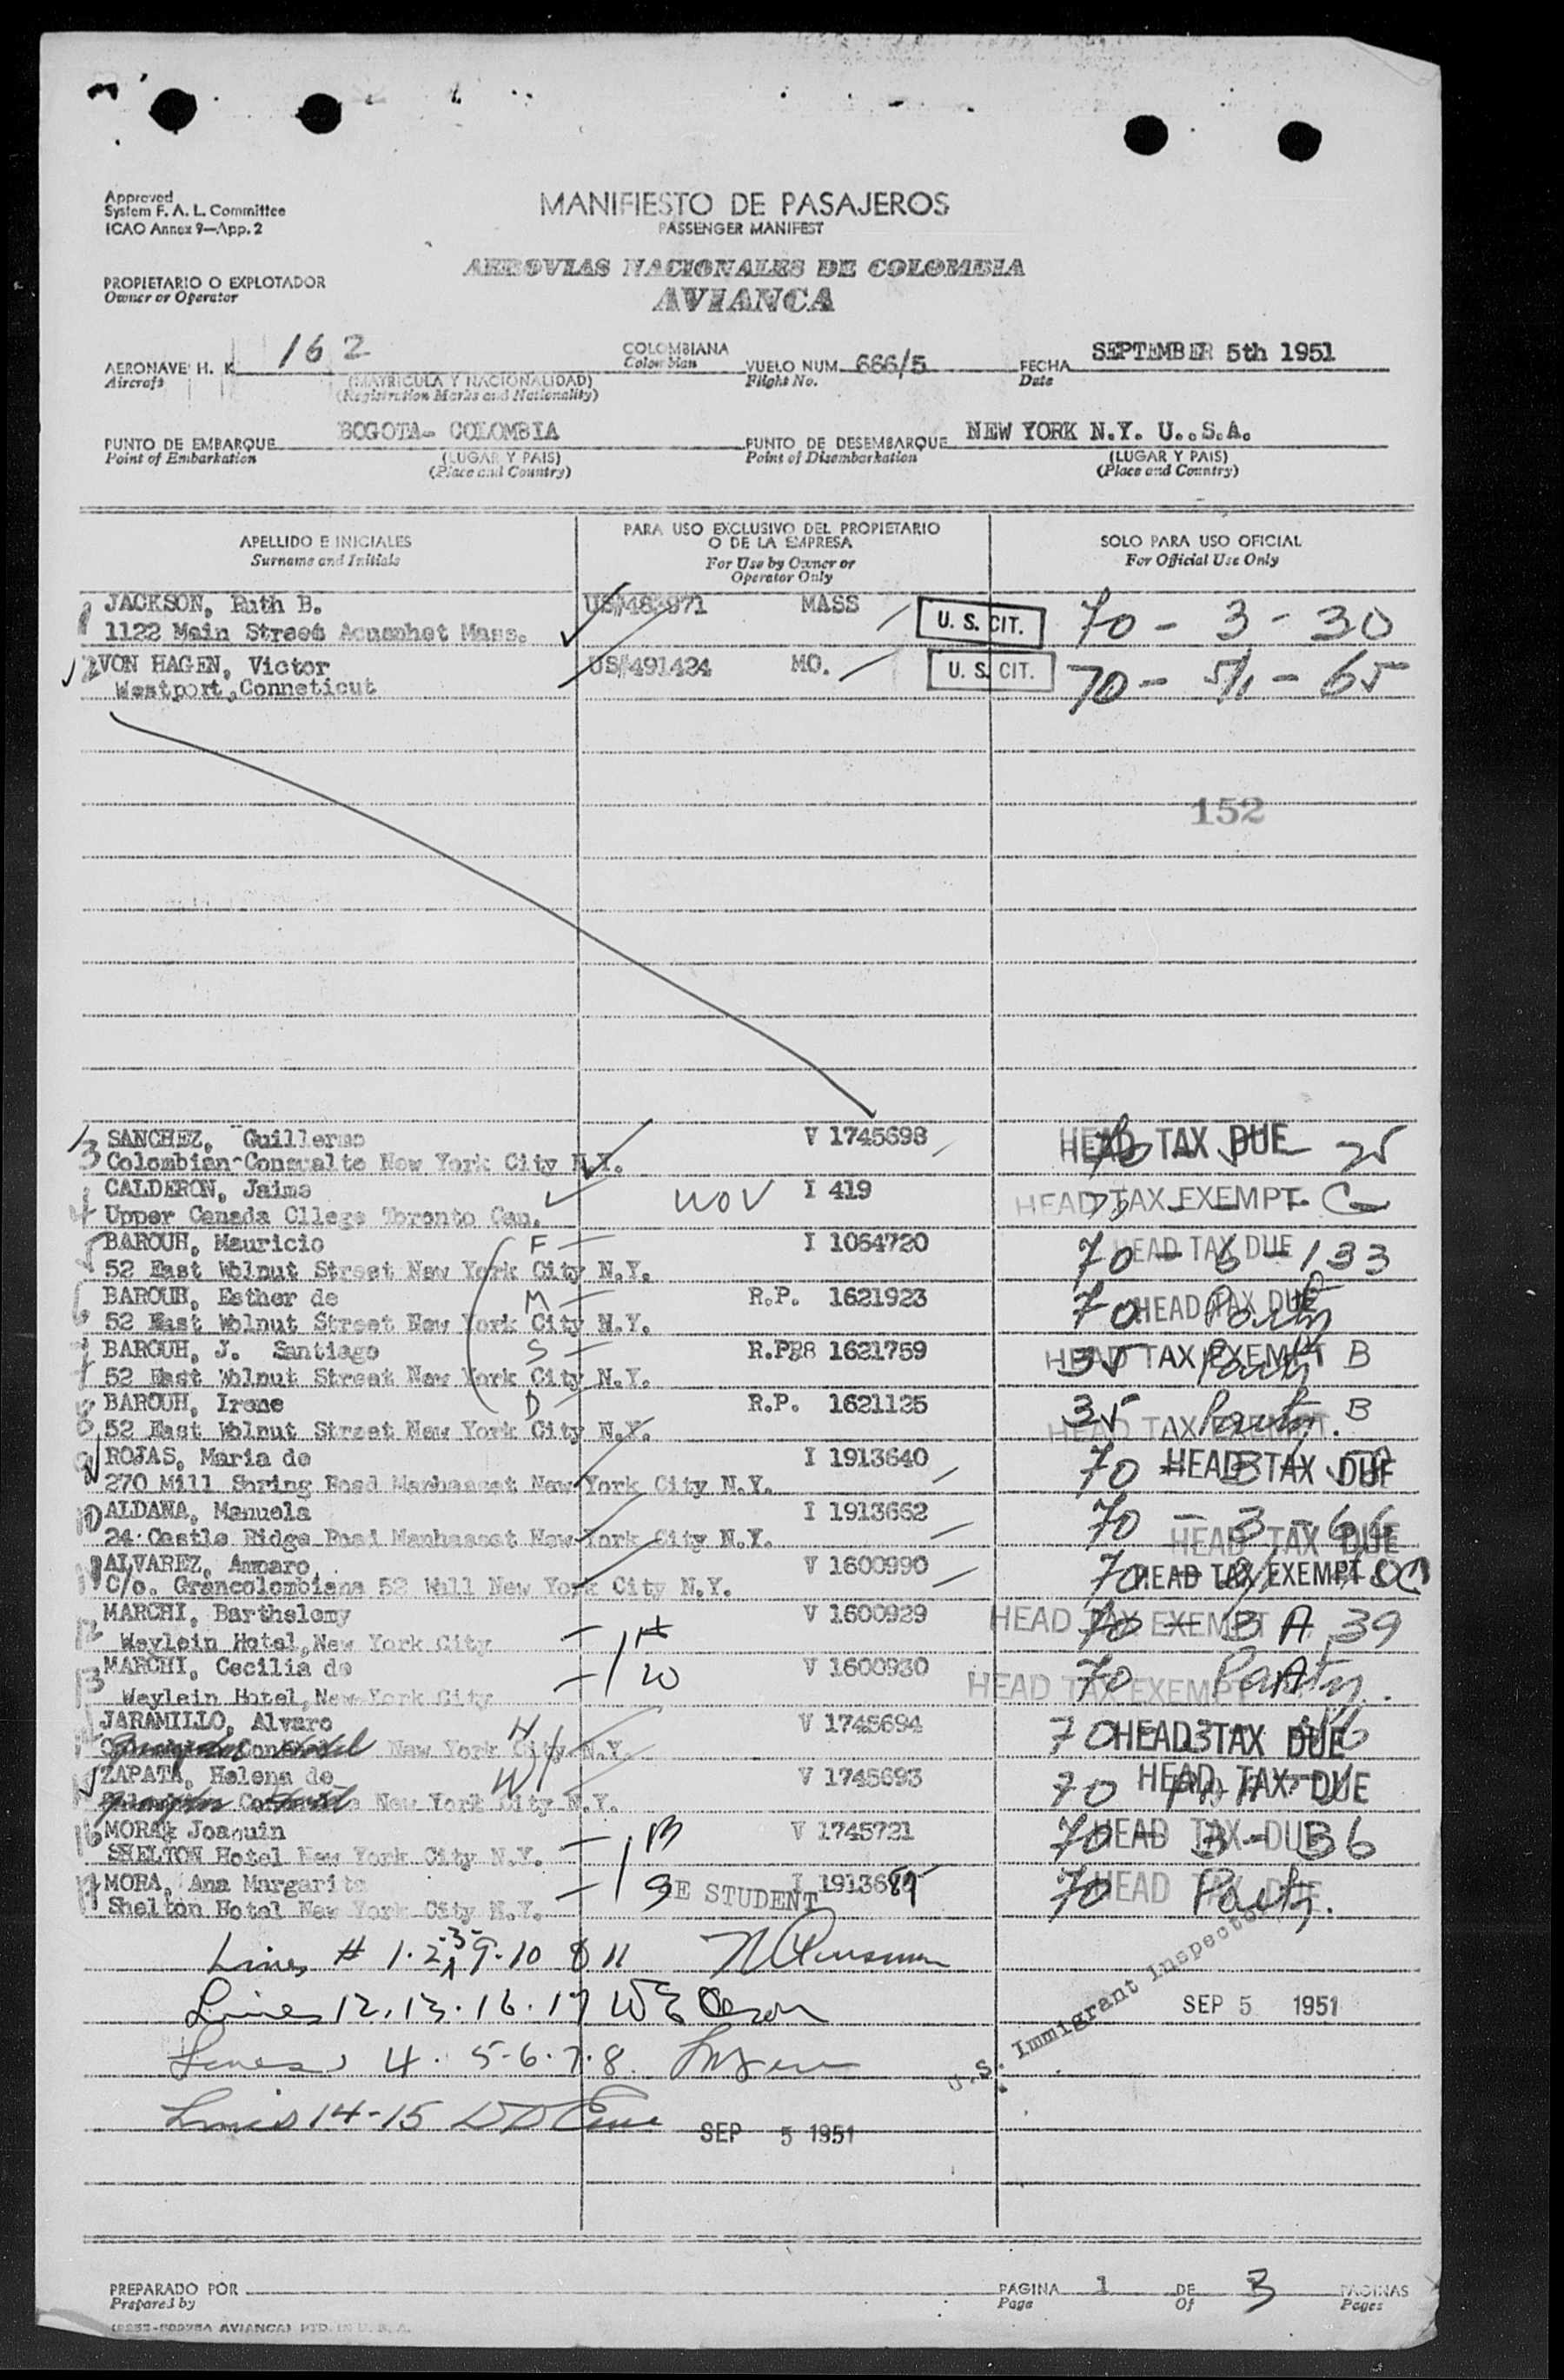 Approved
System F. A. L. Committee
ICAO Annex 9—App. 2
MANIFIESTO DE PASAJEROS
PASSENGER MANIFEST
AEROVIAS NACIONALES DE COLOMBIA
AVIANCA
PROPIETARIO O EXPLOTADOR
Owner or Operator
AERONAVE H. K. 162 COLOMBIANA VUELO NUM. 666/5 FECHA SEPTEMBER 5th 1951
Aircraft (MATRICULA Y NACIONALIDAD) Colombian Flight No. Date
(Registration Marks and Nationality)
PUNTO DE EMBARQUE BOGOTA- COLOMBIA PUNTO DE DESEMBARQUE NEW YORK N.Y. U..S.A.
Point of Embarkation (LUGAR Y PAIS) Point of Disembarkation (LUGAR Y PAIS)
(Place and Country) (Place and Country)
APELLIDO E INICIALES PARA USO EXCLUSIVO DEL PROPIETARIO O DE LA EMPRESA SOLO PARA USO OFICIAL
Surname and Initials For Use by Owner or Operator Only For Official Use Only
1 JACKSON, Ruth B. MASS U. S. CIT. 70 - 3 - 30
1122 Main Street Acushet Mass.
2 VON HAGEN, Victor US#491424 MO. U. S. CIT. 70 - 5/1 - 65
Westport, Conneticut
152
3 SANCHEZ, Guillermo V 1745698 HEAD TAX DUE
Colombian Consualte New York City N.Y.
4 CALDERON, Jaime I 419 HEAD TAX EXEMPT
Upper Canada Cllege Toronto Can.
5 BAROUH, Mauricio F I 1064720 HEAD TAX DUE 70 - 6 - 133
52 East Wolnut Street New York City N.Y.
6 BAROUH, Esther de M R.P. 1621923 HEAD TAX DUE 70 Party
52 East Wolnut Street New York City N.Y.
7 BAROUH, J. Santiago S 1621759 HEAD TAX EXEMPT 35 Party B
52 East Wolnut Street New York City N.Y.
8 BAROUH, Irene D R.P. 1621125 HEAD TAX EXEMPT 35 Party. B
52 East Wolnut Street New York City N.Y.
9 ROJAS, Maria de I 1913640 70 HEAD TAX DUE
270 Mill Spring Road Manhasset New York City N.Y.
10 ALDANA, Manuela I 1913662 70 - 3 - 66 HEAD TAX DUE
24 Castle Ridge Road Manhasset New York City N.Y.
11 ALVAREZ, Amparo V 1600990 70 HEAD TAX EXEMPT
C/o. Grancolombiana 52 Wall New York City N.Y.
12 MARCHI, Barthelomy H V 1600929 HEAD TAX EXEMPT 70 - 3 A 39
Weylein Hotel, New York City
13 MARCHI, Cecilia de W V 1600930 HEAD TAX EXEMPT 70 Party.
Weylein Hotel, New York City
14 JARAMILLO, Alvaro H V 1745694 70 HEAD TAX DUE
New York City N.Y.
15 ZAPATA, Helena de W V 1745693 70 HEAD TAX DUE
New York City N.Y.
16 MORA, Joaquin B V 1745721 70 HEAD TAX DUE 3 - 36
SHELTON Hotel New York City N.Y.
17 MORA, Ana Margarita S I 70 HEAD TAX DUE Party.
Shelton Hotel New York City N.Y. STUDENT
Lines # 1. 2. 3- 9. 10 & 11
Lines 12. 13. 16. 17
Lines 4. 5-6.7.8.
Lines 14-15
U.S. Immigrant Inspector
SEP 5 1951
SEP 5 1951
PREPARADO POR PAGINA 1 DE 3 PAGINAS
Prepared by Page Of Pages